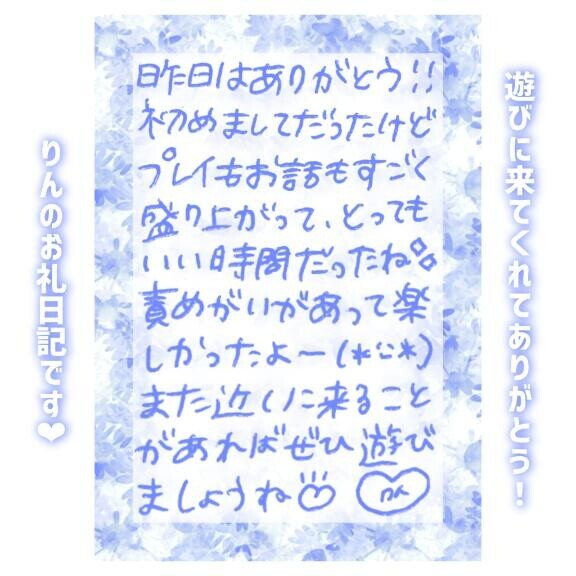 遊びに来てくれてありがとう！
昨日はありがとう!!
初めましてだったけど
プレイもお話もすごく
盛り上がって、とっても
いい時間だったね
責めがいがあって楽
しかったよ〜(*ᵕᵕ*)
また近くに来ること
があればぜひ遊び
ましょうね
りん
りんのお礼日記です❤